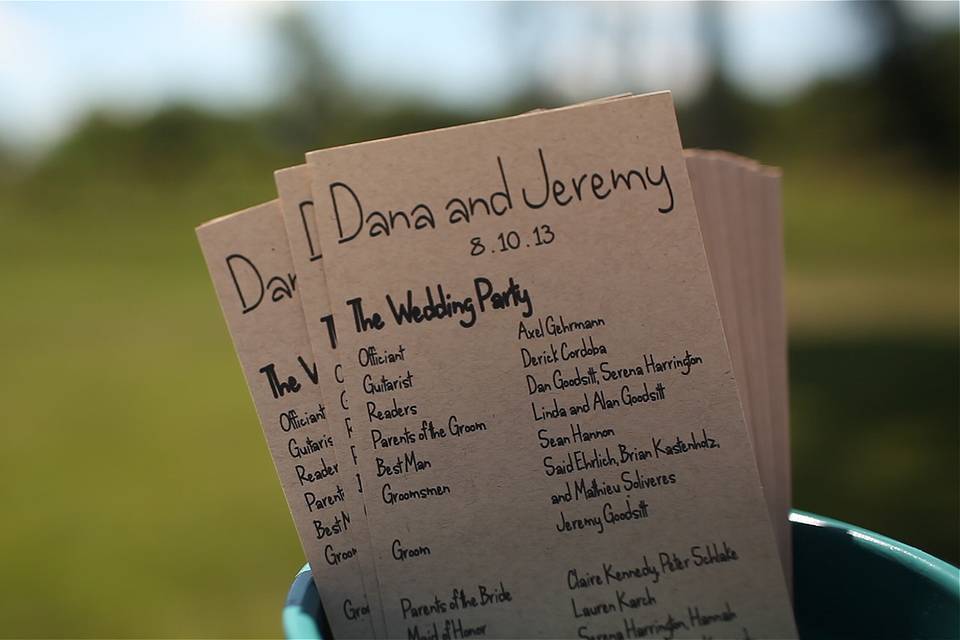 Dana and Jeremy
8.10.13
The Wedding Party
Officiant Axel Gehrmann
Guitarist Derick Cordoba
Readers Dan Goodsitt, Serena Harrington
Parents of the Groom Linda and Alan Goodsitt
Best Man Sean Hannon
Groomsmen Said Ehrlich, Brian Kastenholz,
and Mathieu Soliveres
Groom Jeremy Goodsitt
Parents of the Bride Claire Kennedy, Peter Schlake
Maid of Honor Lauren Karch
Serena Harrington, Hannah
Dan
The V
Officiant
Guitaris
Reader
Parent
Best M
Groo
Gro